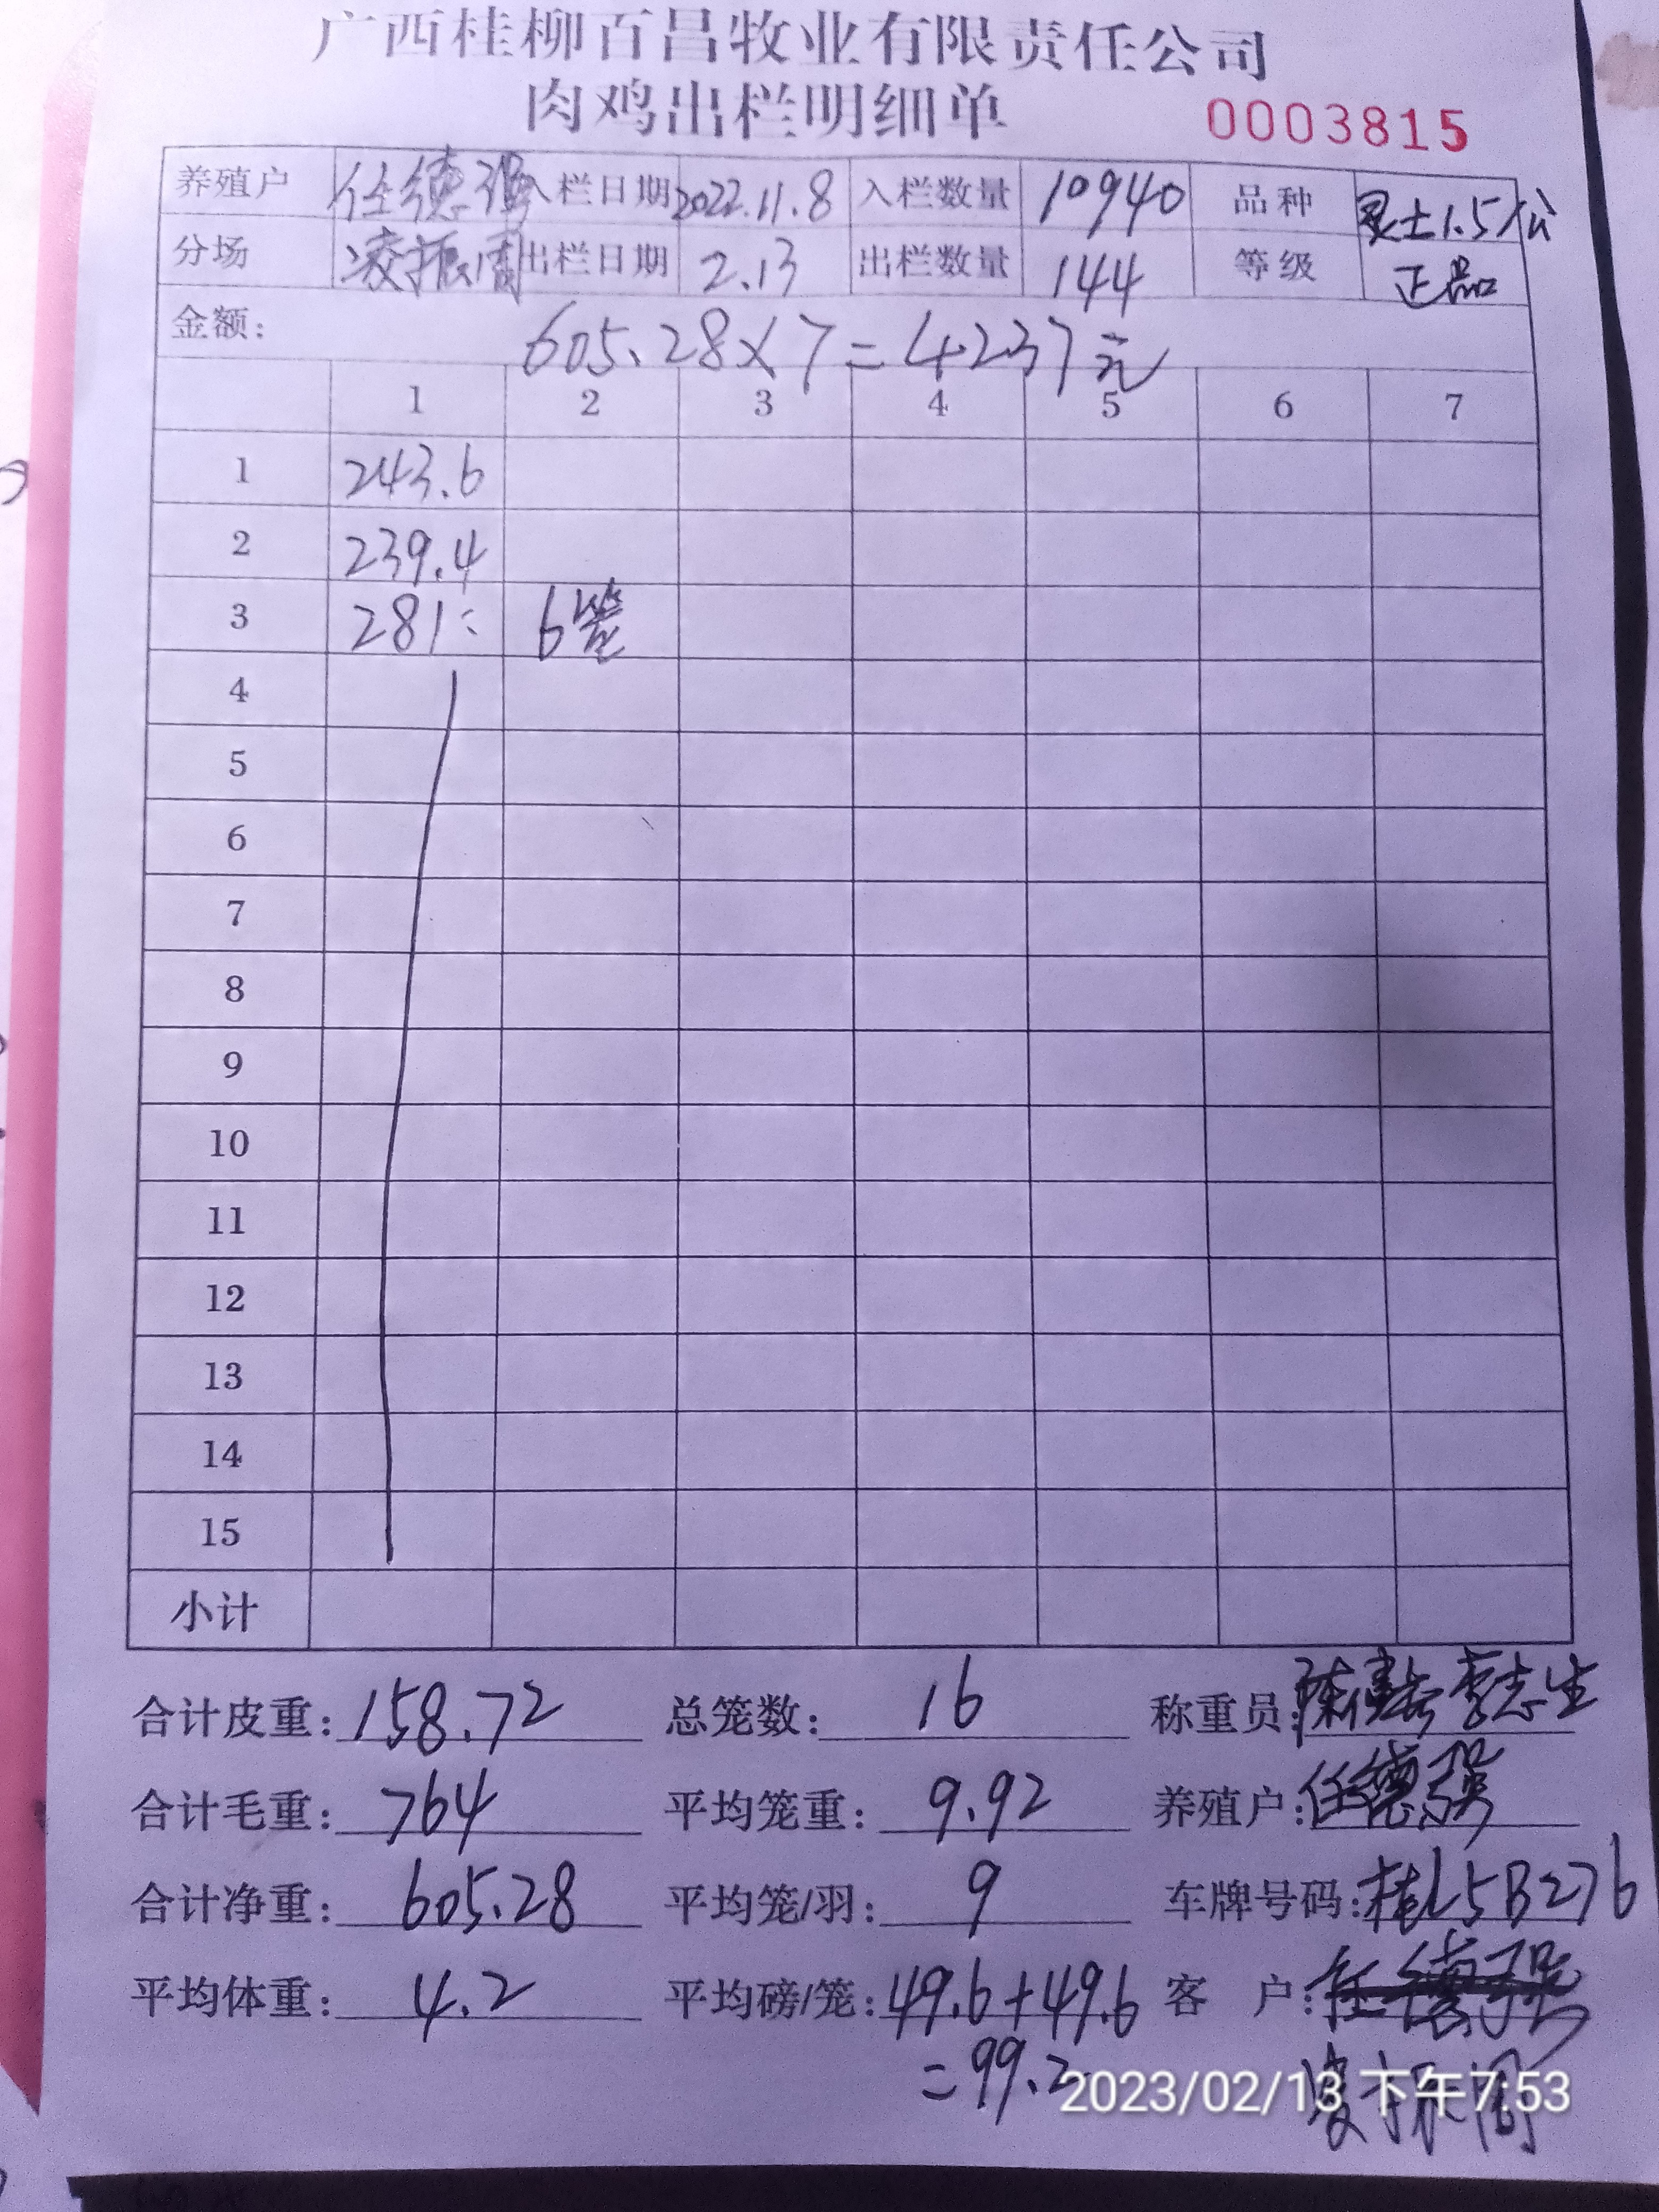 广西桂柳百昌牧业有限责任公司
肉鸡出栏明细单 0003815
养殖户 任德强 入栏日期 2022.11.8 入栏数量 10940 品种 灵土1.5/公
分场 凌振周 出栏日期 2.13 出栏数量 144 等级 正品
金额: 605.28×7=4237元
1 2 3 4 5 6 7
1 243.6
2 239.4
3 281: 6笼
4
5
6
7
8
9
10
11
12
13
14
15
小计
合计皮重: 158.72 总笼数: 16 称重员: 李志生
合计毛重: 764 平均笼重: 9.92 养殖户: 任德强
合计净重: 605.28 平均笼/羽: 9 车牌号码: 桂L5B276
平均体重: 4.2 平均磅/笼: 49.6+49.6 客 户: 任德强
=99.2 凌振周
2023/02/13 下午7:53